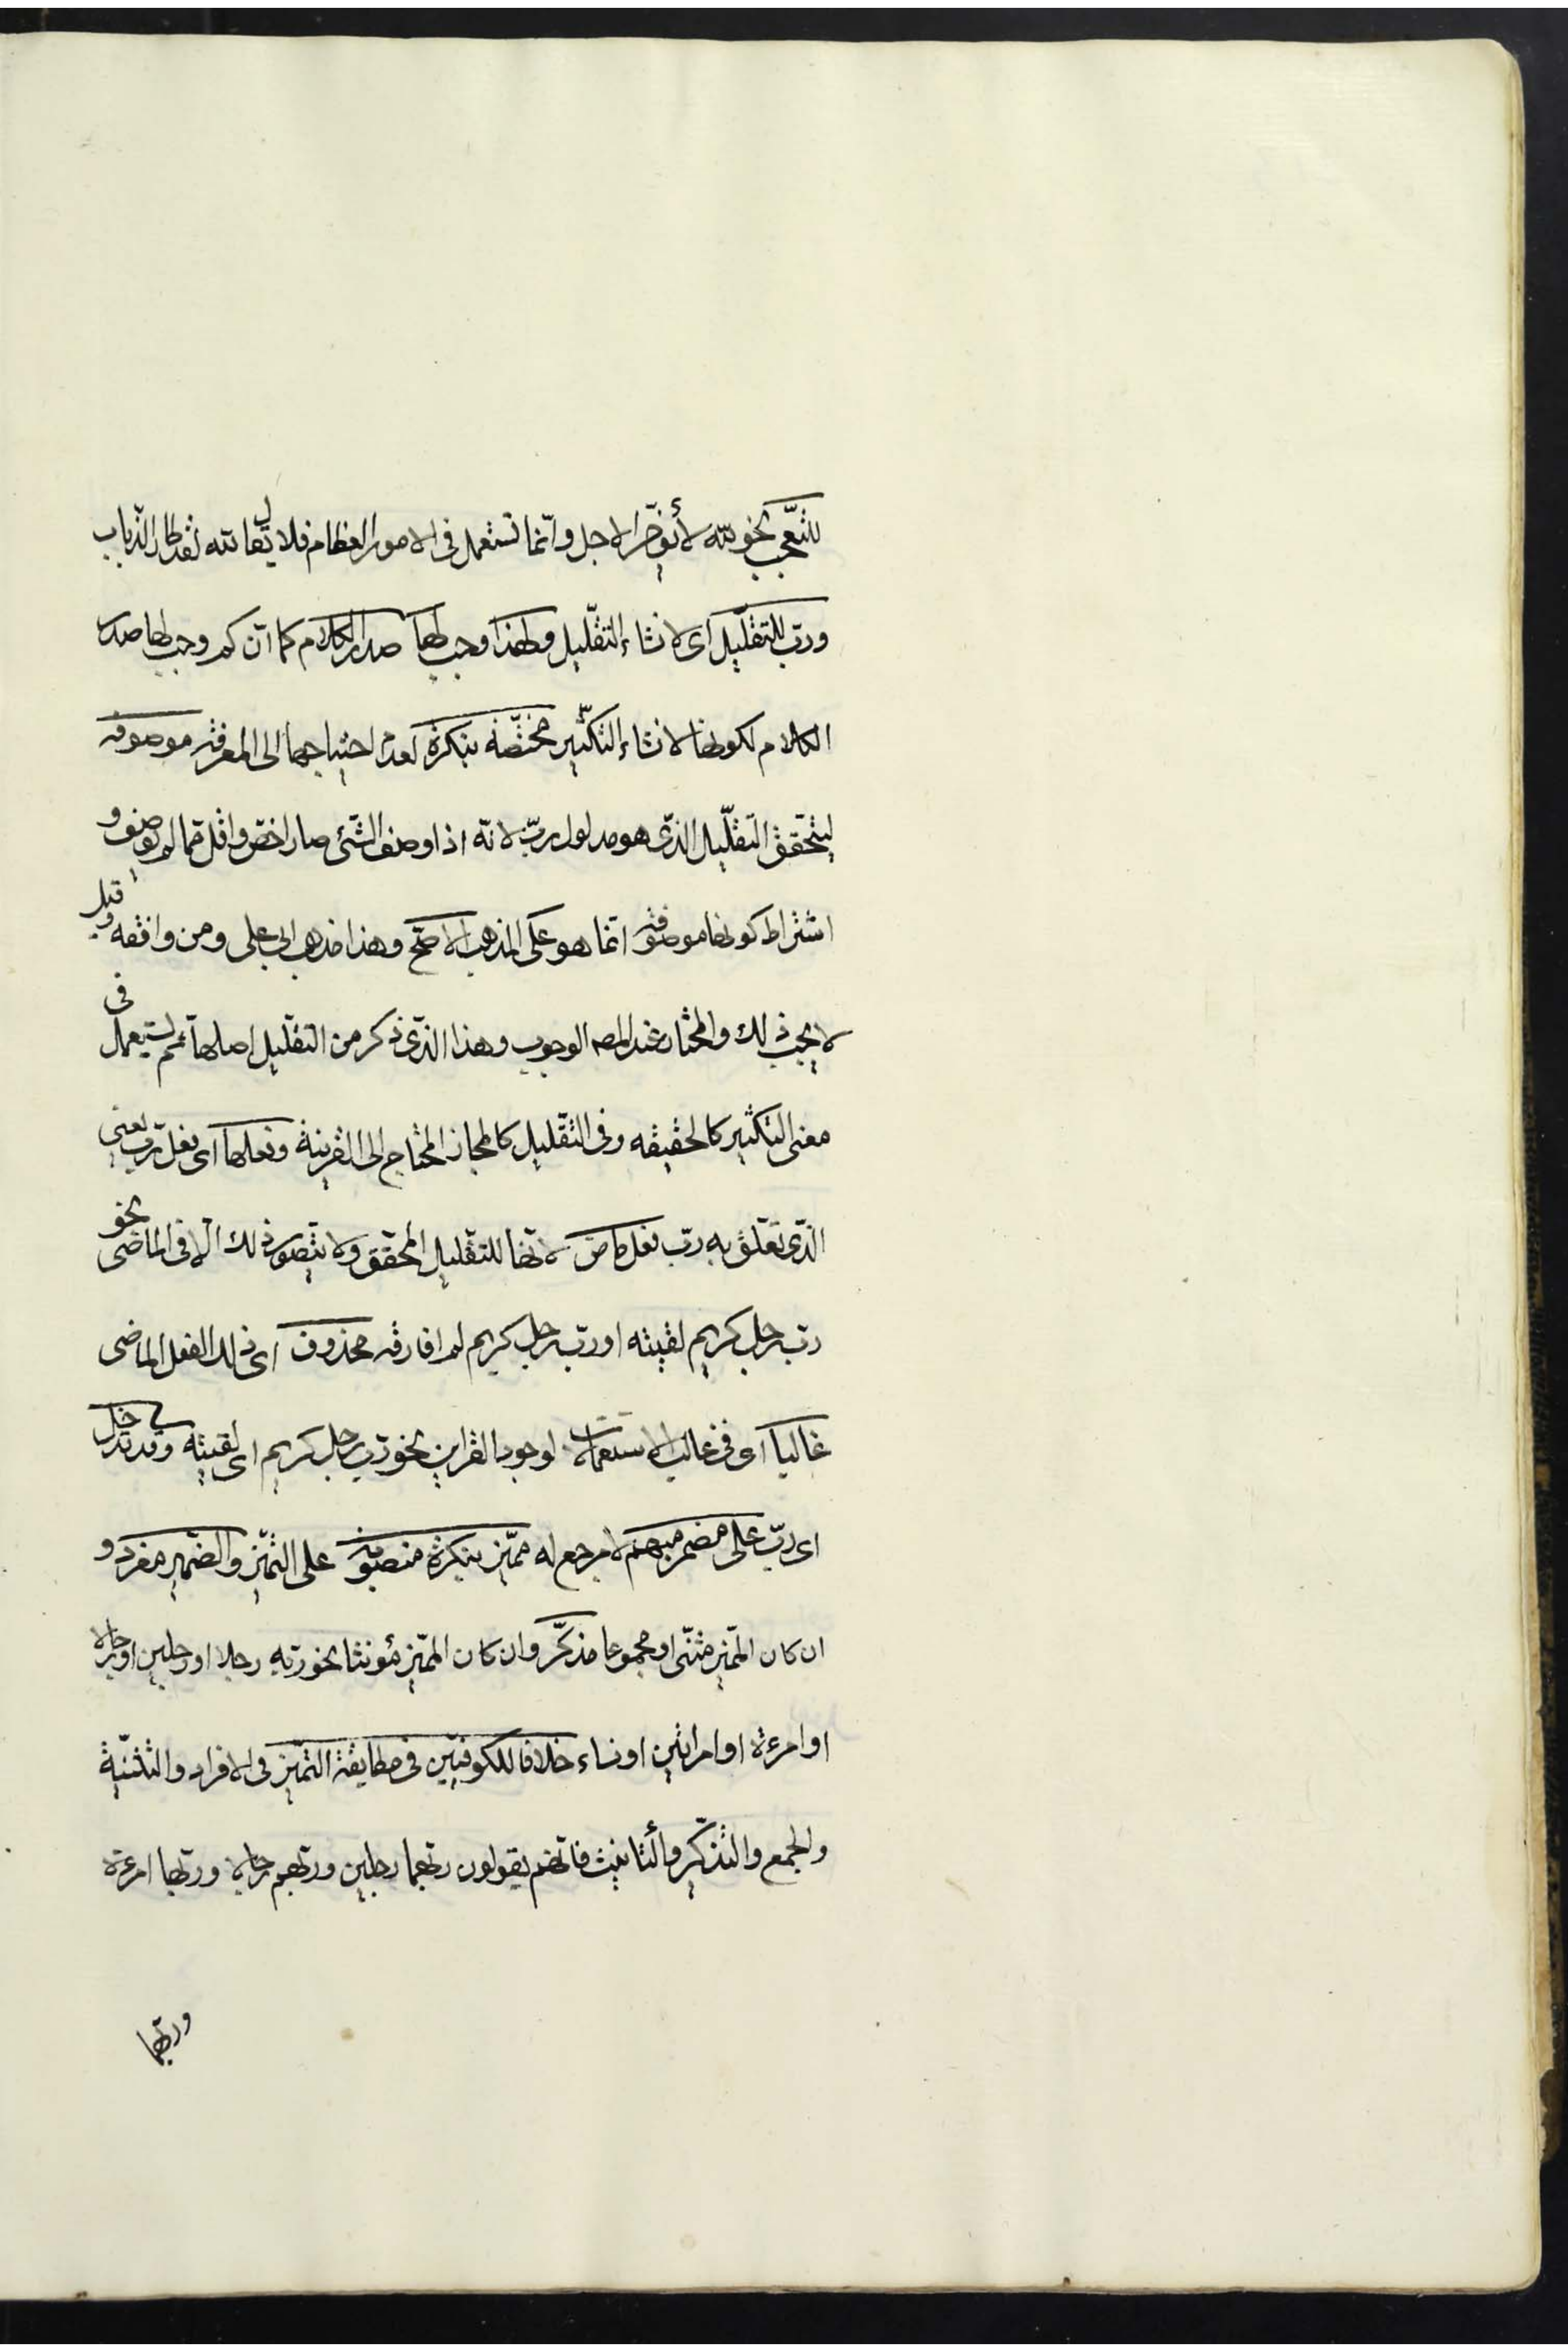 للتعجّب نحو لله لا يؤخّر الاجل وانّما تستعمل فى الامور العظام فلا يقال لله لقد طار الذباب
وربّ للتقليل اى لانشاء التقليل ولهذا وجب لها صدر الكلام كما انّ كم وجب لها صدر
الكلام لكونها لانشاء التكثير مختصّة بنكرة لعدم احتياجها الى المعرفة موصوفة
ليتحقق التقليل الذّى هو مدلول ربّ لانّه اذا وصف الشّئ صار اخصّ واقل ممّا لم يوصف و
اشتراط كونها موصوفة انّما هو على المذهب الاصحّ وهذا مذهب ابى على ومن وافقه وقيل
لا يجب ذلك والمختار عند المصـ الوجوب وهذا الذّى ذكر من التقليل اصلها ثمّ يستعمل فى
معنى التكثير كالحقيقه وفى التّقليل كالمجاز المحتاج الى القرينة وفعلها اى فعل ربّ يعنى
الذّى تعلّق به ربّ فعل ماض لانّها للتقليل المحقق ولا يتصور ذلك الّا فى الماضى نحو
ربّ رجل كريم لقيته او ربّ رجل كريم لم افارقه محذوف اى ذلك الفعل الماضى
غالبا اى فى غالب الاستعمالات لوجود القراين نحو ربّ رجل كريم اى لقيته وقد تدخل
اى ربّ على مضمر مبهم لا مرجع له مميّز بنكرة منصوبة على التميّز والضّمير مفرد و
ان كان المّميز مثنّى او مجموعا مذكّر وان كان المّميز مؤنثا نحو ربّه رجلا او رجلين او رجالا
او امرءة او امراتين او نساء خلافا للكوفيّين فى مطابقة التميّز فى الافراد والتّثنية
والجمع والتذكّير والتأنيث فانّهم يقولون ربّهما رجلين وربّهم رجالا وربّها امرءة
وربّهما